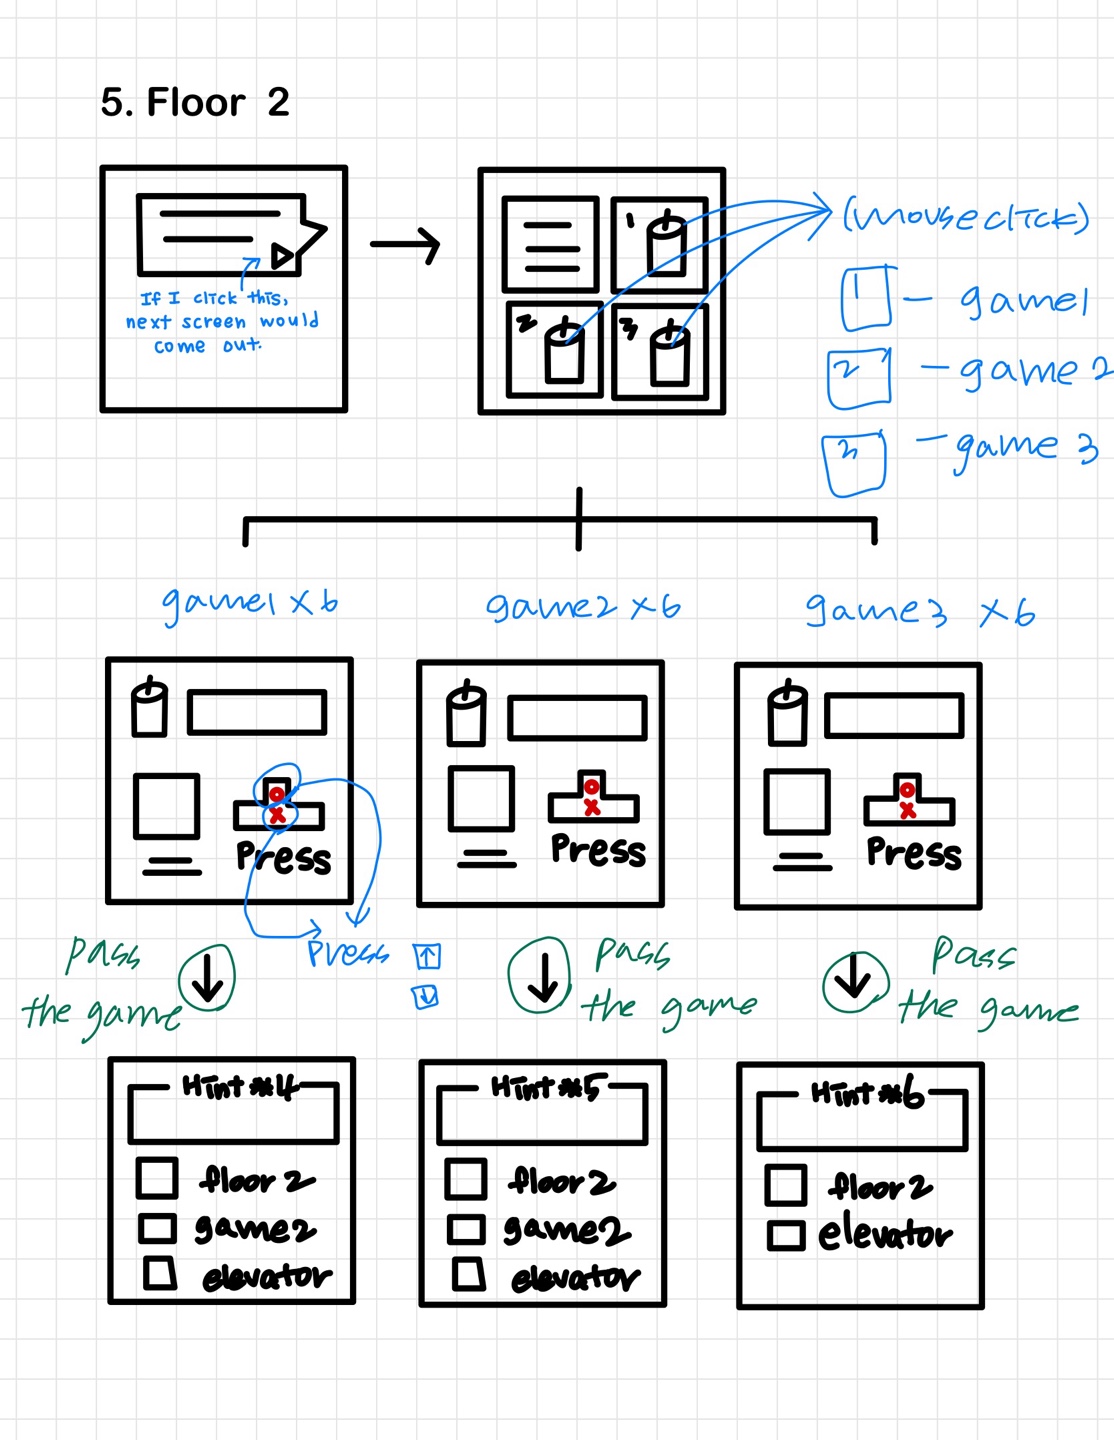 5. Floor 2
If I click this,
next screen would
come out.
1
2
3
(mouse click)
1 - game1
2 - game 2
3 - game 3
game1 x6
game2 x6
game3 x6
O
X
Press
O
X
Press
O
X
Press
Press ↑
↓
Pass
the game
Pass
the game
Pass
the game
Hint #4
floor 2
game2
elevator
Hint #5
floor 2
game2
elevator
Hint #6
floor 2
elevator